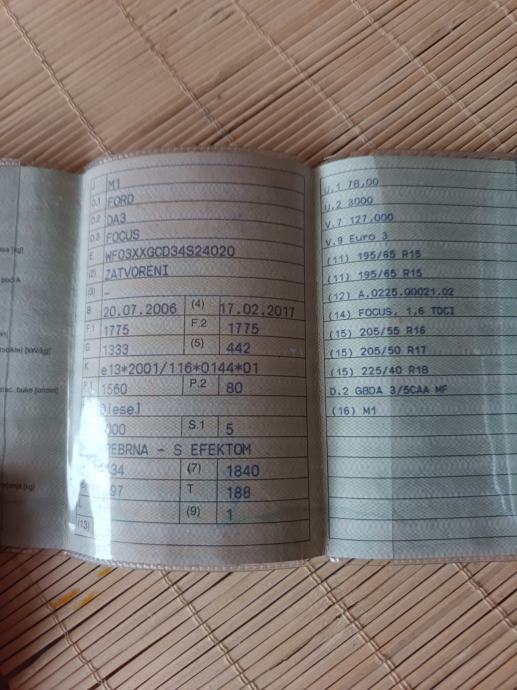 J M1
D.1 FORD
D.2 DA3
D.3 FOCUS
E WF03XXGCD34S24020
(2) ZATVORENI
(3) -
B 20.07.2006 (4) 17.02.2017
F.1 1775 F.2 1775
G 1333 (5) 442
K e13*2001/116*0144*01
P.1 1560 P.2 80
Diesel
000 S.1 5
EBRNA - S EFEKTOM
34 (7) 1840
97 T 188
(9) 1
(13)
U.1 78.00
U.2 3000
V.7 127.000
V.9 Euro 3
(11) 195/65 R15
(11) 195/65 R15
(12) A.0225.00021.02
(14) FOCUS, 1,6 TDCI
(15) 205/55 R16
(15) 205/50 R17
(15) 225/40 R18
D.2 GBDA 3/5CAA MF
(16) M1
[kg]
pod A
[kW/kg]
buke [o/min]
[kg]